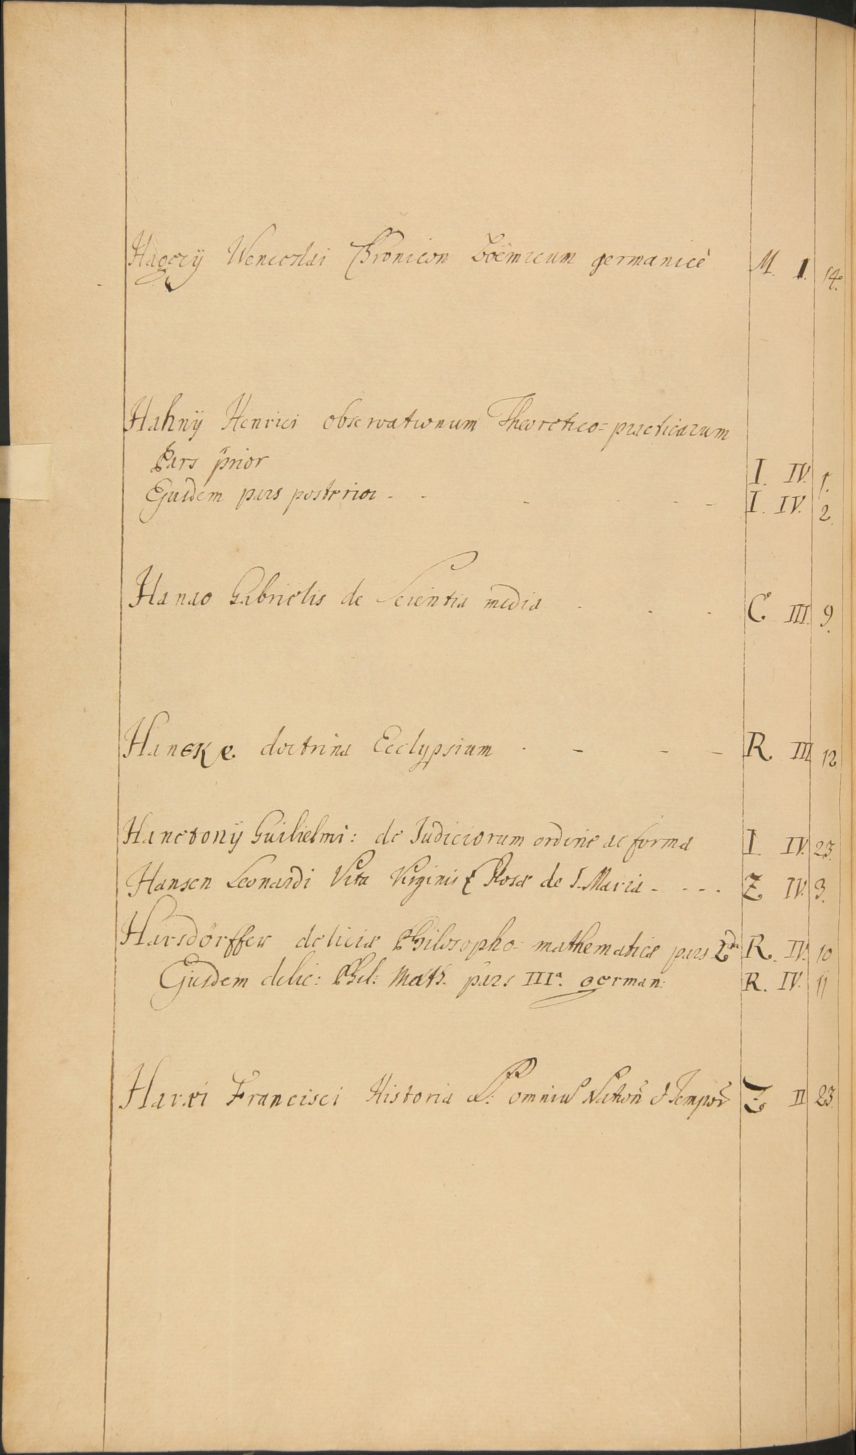 Hagecÿ Wenceslai Chronicon Boëmicum germanicè M. 1. 14.
Hahnÿ Henrici observationum Theoretico=practicarum
Pars prior I. IV. 1.
Ejusdem pars posterior - - - - - I. IV. 2.
Hanao Gabrielis de Scientia media . . . C III. 9.
Haneke. doctrina Ecclypsium . - - - R. III 12
Hanetonÿ Guilielmi: de Judiciorum ordine ac forma I IV. 23.
Hansen Leonardi Vita Virginis Rosæ de S. Maria - - - - Z. IV. 3.
Harsdörffer deliciæ Philosopho- mathematicæ pars 2da R. IV. 10
Ejusdem delic: Phil: Math. pars IIIa. german: R. IV. 11
Harxi Francisci Historia omniū Nation̄ & Tempor̄ Z II 23